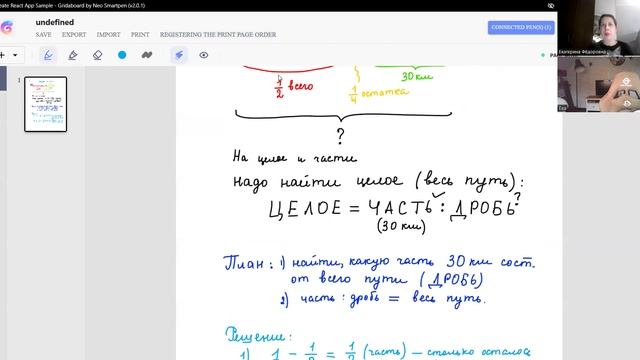 eate React App Sample - Gridaboard by Neo Smartpen (v2.0.1)
undefined
SAVE EXPORT IMPORT PRINT REGISTERING THE PRINT PAGE ORDER
CONNECTED PEN(S) (1)
1
1/2 всего
1/4 остатка
30 км
?
На целое и части
надо найти целое (весь путь):
ЦЕЛОЕ = ЧАСТЬ : ДРОБЬ ?
(30 км)
План: 1) найти, какую часть 30 км сост.
от всего пути (ДРОБЬ)
2) часть : дробь = весь путь.
Решение:
1) 1 - 1/2 = 1/2 (часть) — столько осталось
Екатерина Фёдоровна